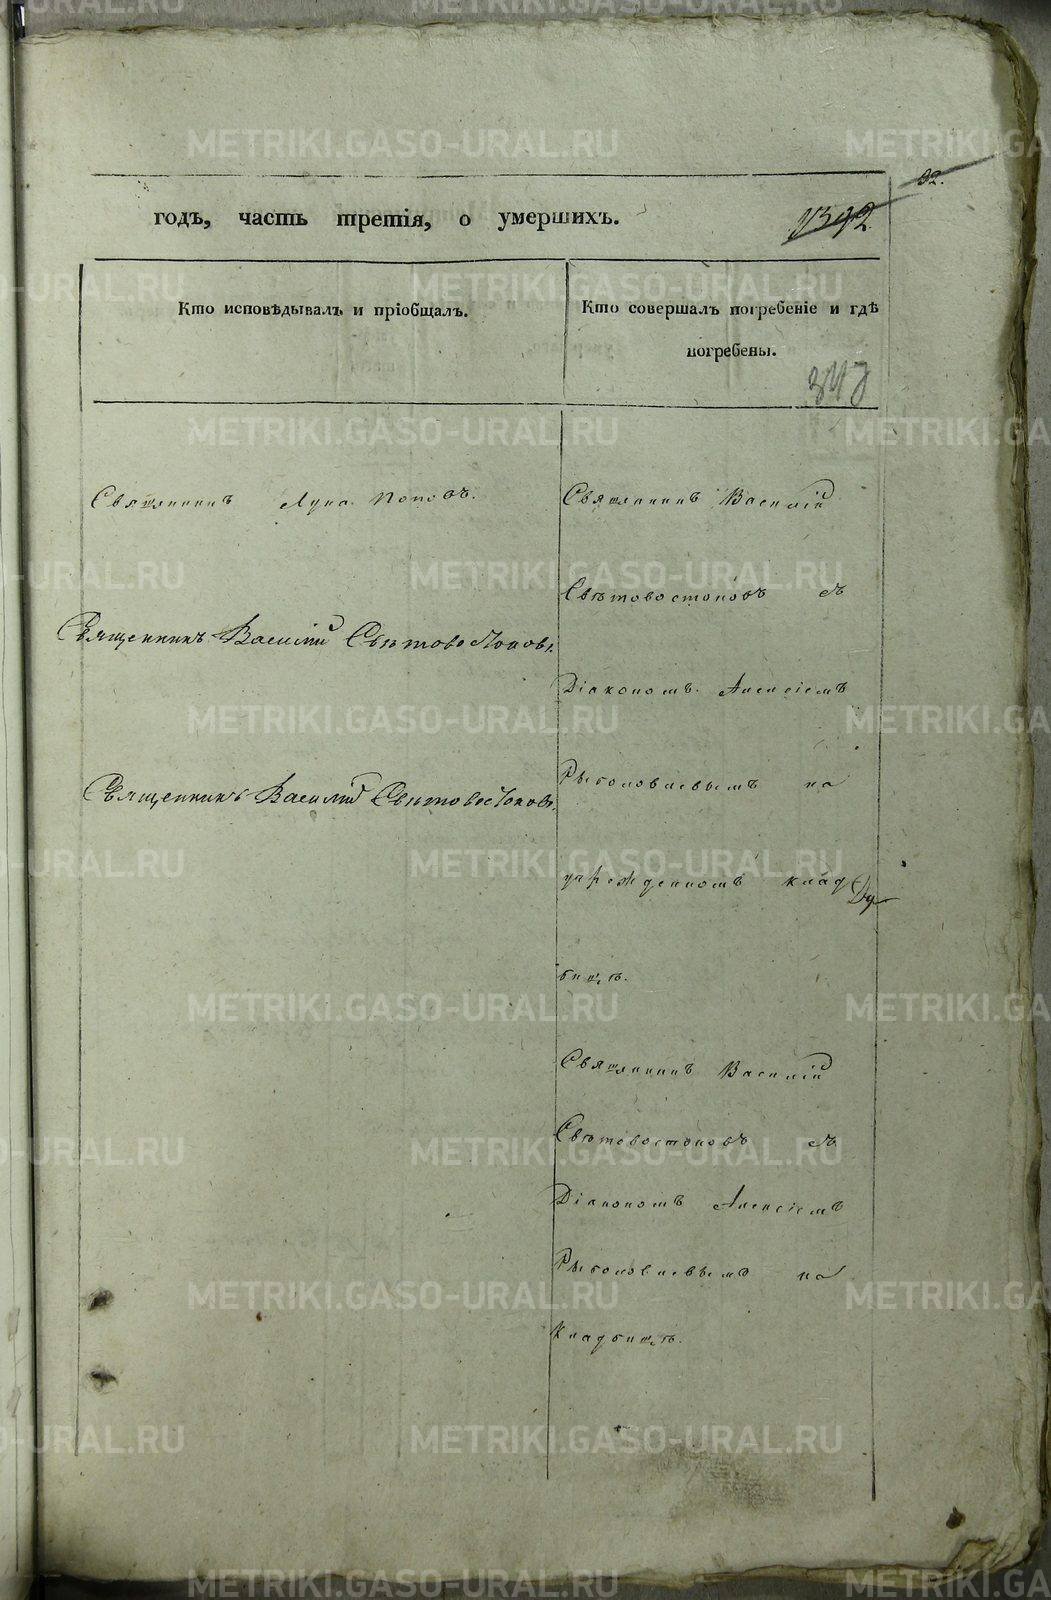 92.
годъ, часть третія, о умершихъ.
1392.
Кто исповѣдывалъ и пріобщалъ.
Кто совершалъ погребеніе и гдѣ
погребены.
Священникъ Лука Поповъ.
Священникъ Василій Свѣтовостоковъ.
Священникъ Василій Свѣтовостоковъ.
Священникъ Василій
Свѣтовостоковъ съ
Діакономъ Алексіемъ
Рыболовлевымъ на
учрежденномъ клад
бищѣ.
Священникъ Василій
Свѣтовостоковъ съ
Діакономъ Алексіемъ
Рыболовлевымъ на
Кладбищѣ.
METRIKI.GASO-URAL.RU